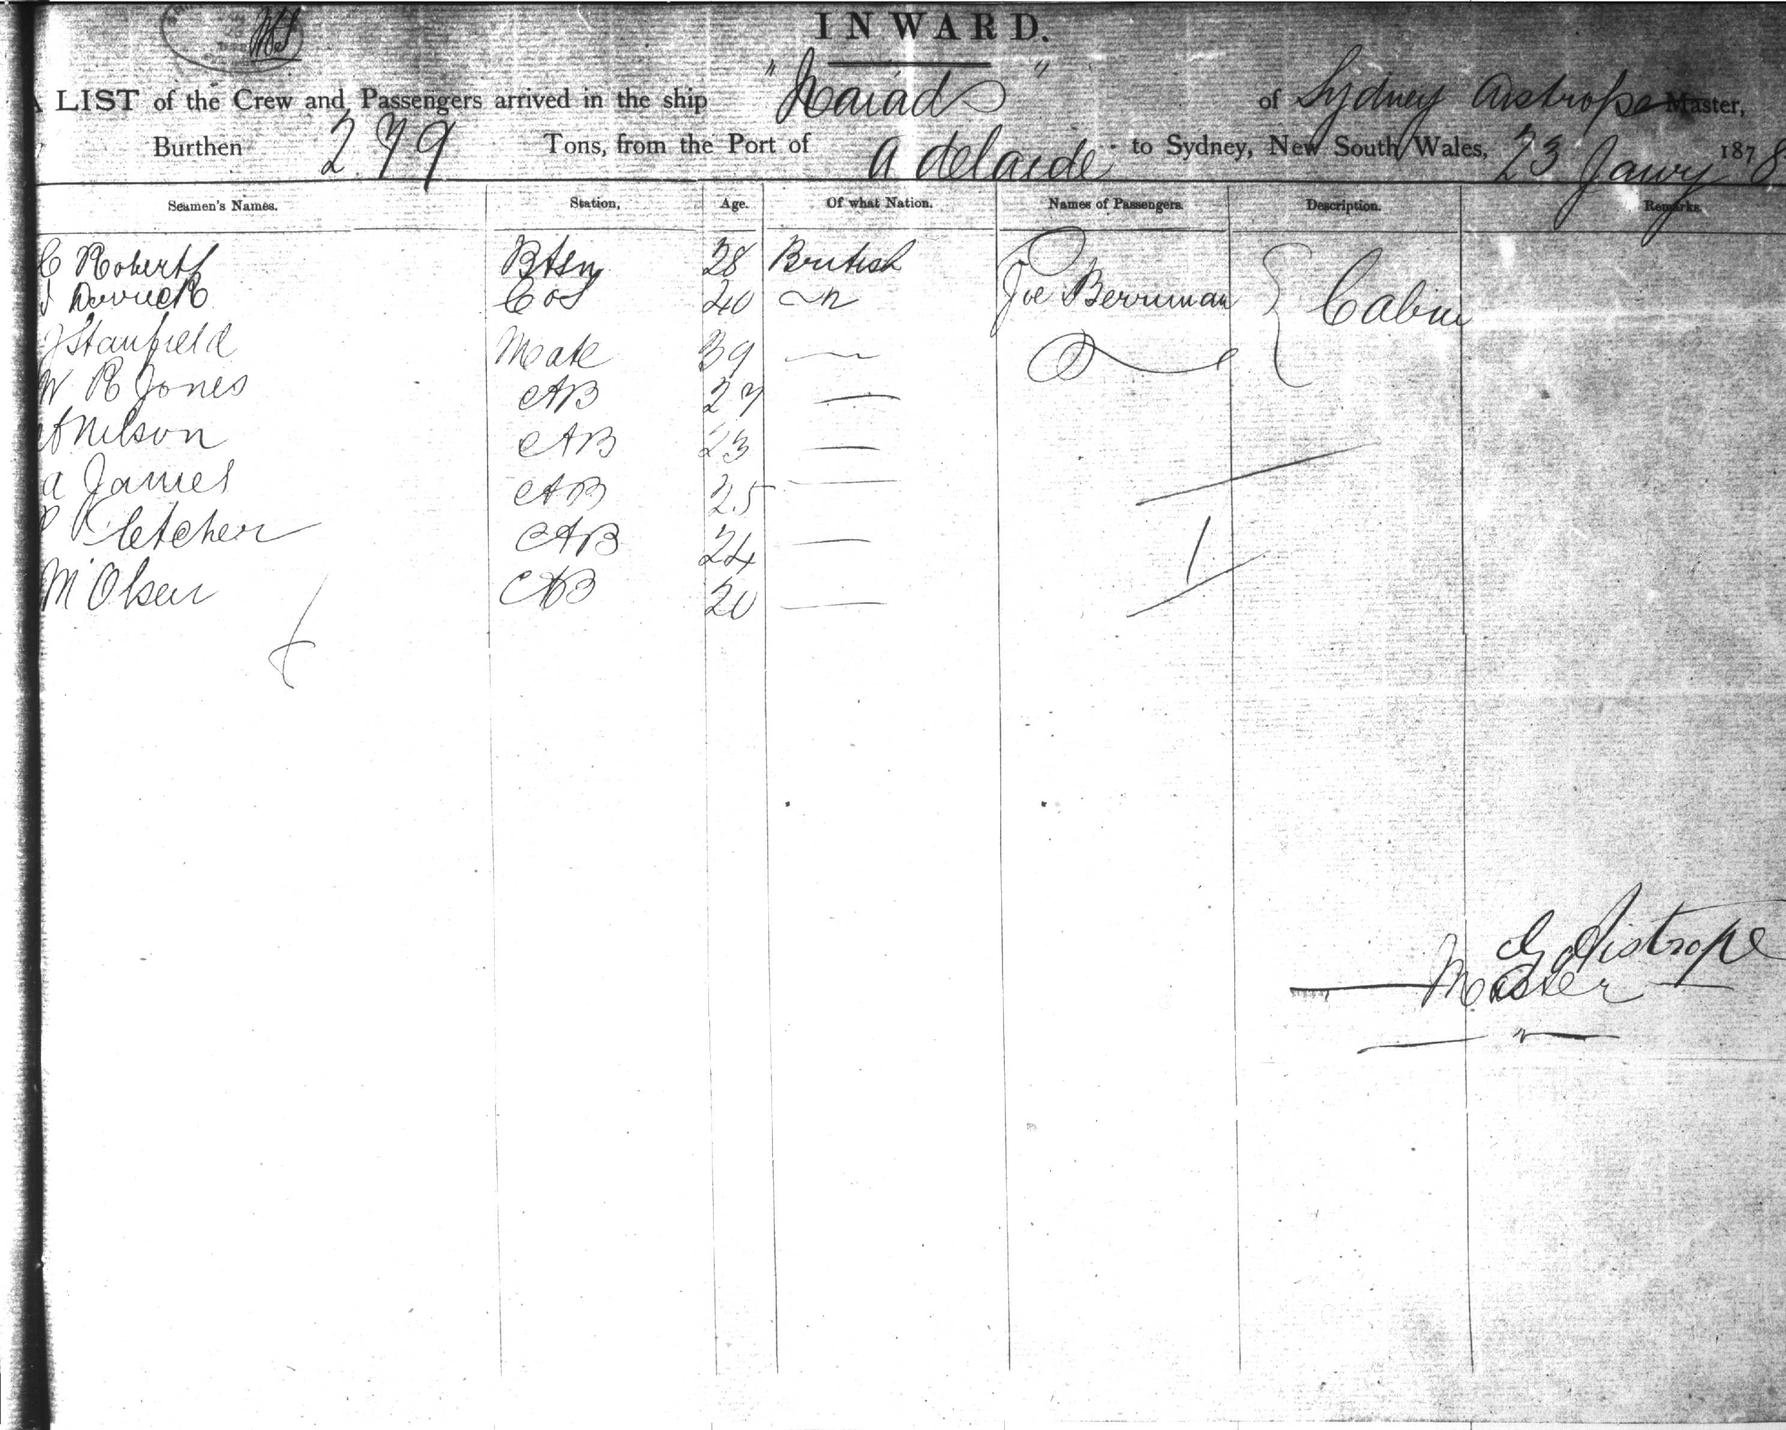 INWARD.
A LIST of the Crew and Passengers arrived in the ship "Naiad" of Sydney Aistrope Master,
Burthen 279 Tons, from the Port of Adelaide to Sydney, New South Wales, 23 Jany 1878
Seamen's Names. Station, Age. Of what Nation. Names of Passengers. Description. Remarks.
C Roberts Btsn 28 British
Derrick Cos 20 Joe Berriman Cabin
J Stanfield Mate 39
W R Jones AB 27
Nilson AB 23
A James AB 25
P Fletcher AB 24
M Olsen AB 20
1
G Aistrope
Master